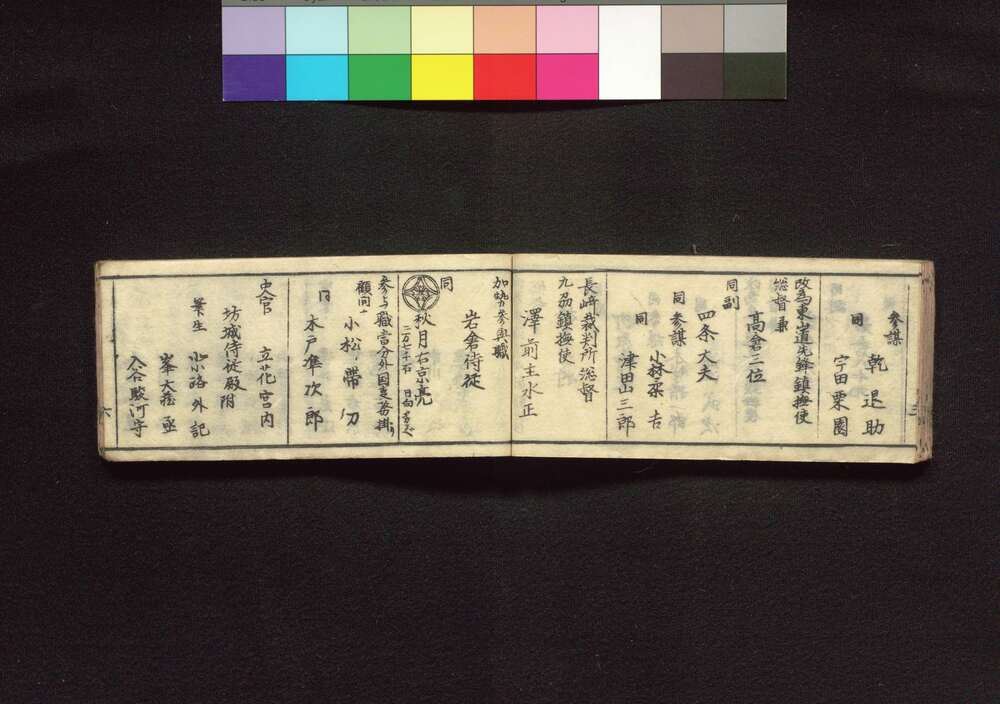 参謀
乾退助
同
宇田栗園
改為東山道先鋒鎮撫使
総督兼
高倉三位
同副
四条大夫
同参謀
小林柔吉
同
津田山三郎
長崎裁判所総督
九州鎮撫使
澤前主水正
加勢参與職
岩倉侍従
同
秋月右京亮
二万七千石
参与職当分外国事務掛り
顧問
小松帯刀
同
木戸準次郎
史官
立花宮内
坊城侍従殿附
筆生
北小路外記
峯大蔵丞
入谷駿河守
三
六